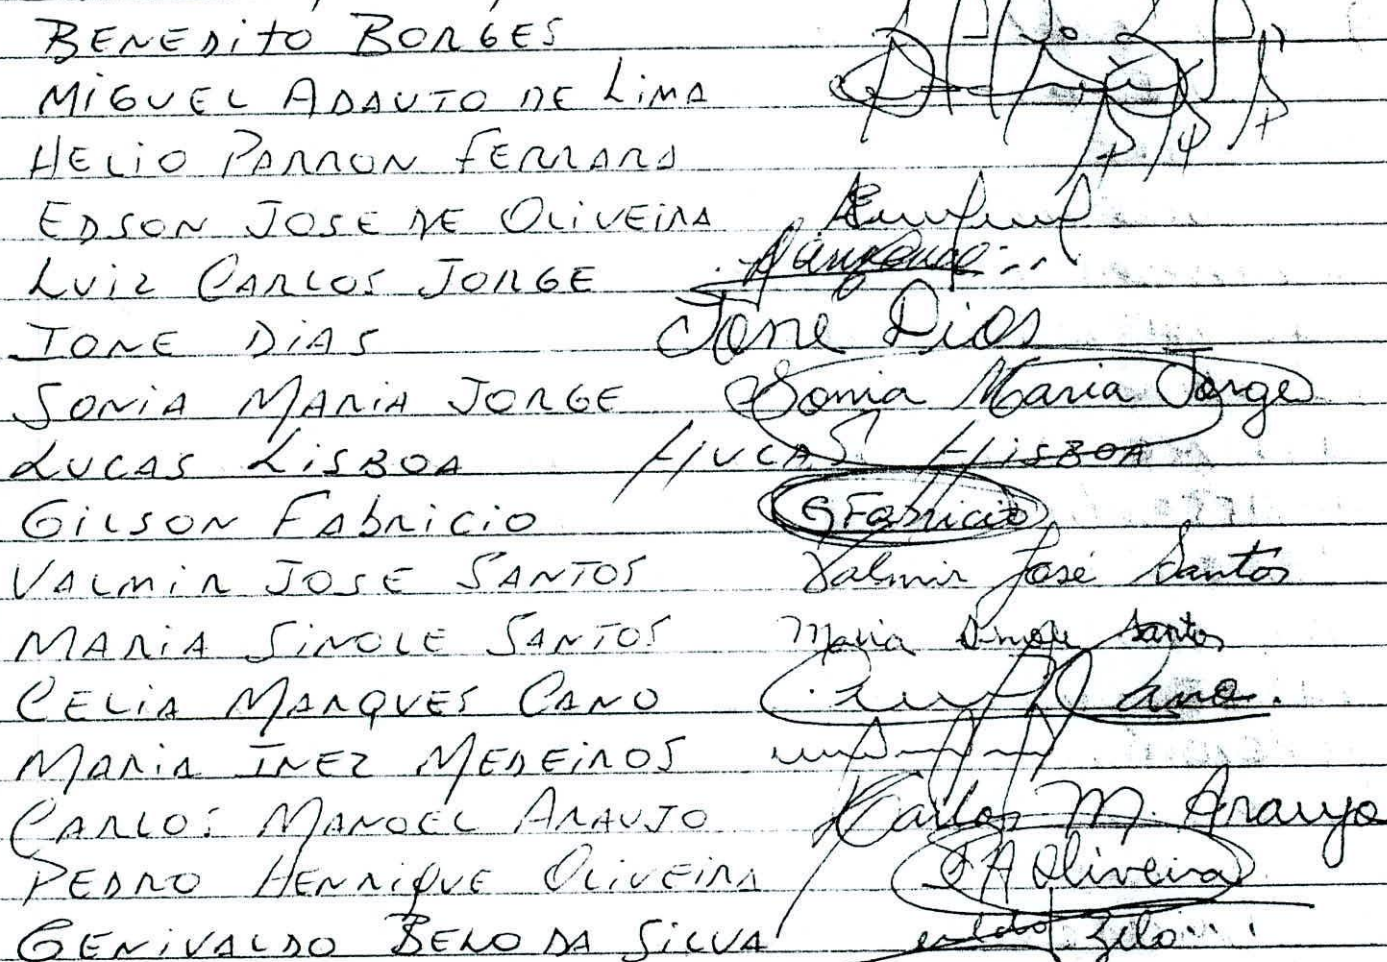 BENEDITO BORGES
MIGUEL ADAUTO DE LIMA
HELIO PARRON FERRARA
EDSON JOSE DE OLIVEIRA
LUIZ CARLOS JORGE
IONE DIAS Ione Dias
SONIA MARIA JORGE Sonia Maria Jorge
LUCAS LISBOA LUCAS LISBOA
GILSON FABRICIO GFabricio
VALMIR JOSE SANTOS Valmir José Santos
MARIA SINOLE SANTOS Maria Sinole Santos
CELIA MARQUES CANO Cano.
MARIA INEZ MEDEIROS
CARLOS MANOEL ARAUJO Carlos M. Araujo
PEDRO HENRIQUE OLIVEIRA Oliveira
GENIVALDO BELO DA SILVA